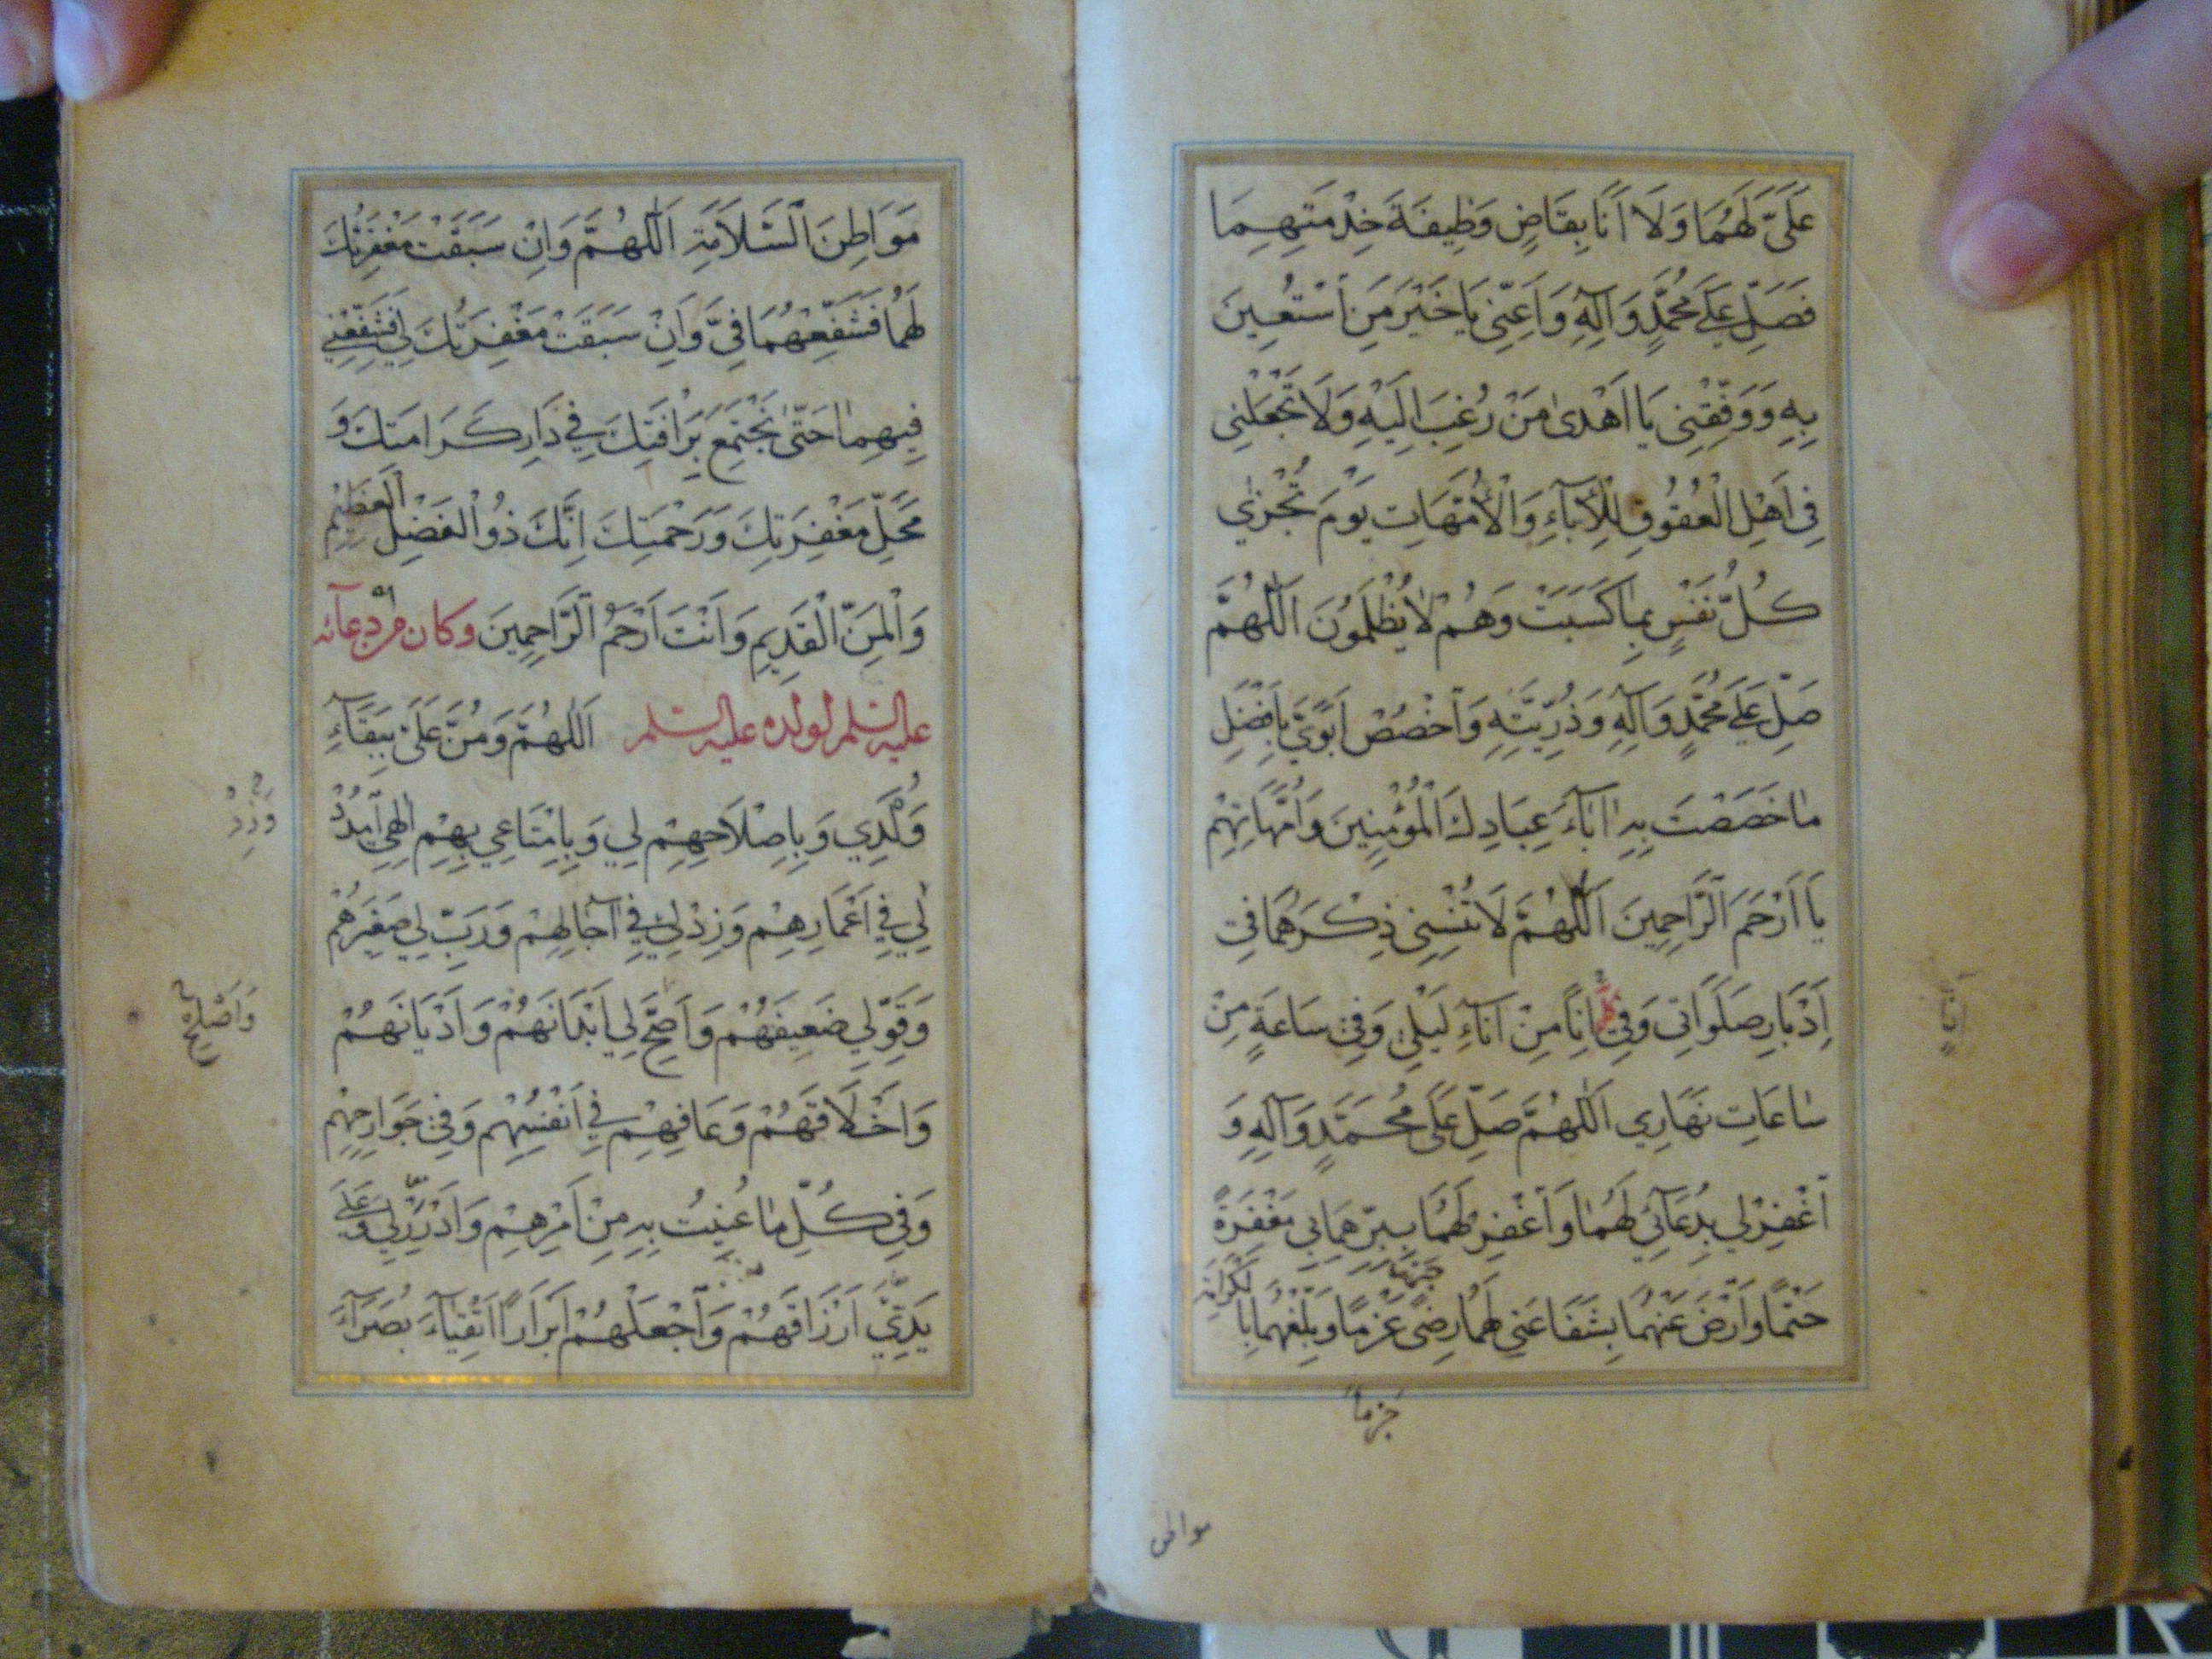 عَلَيَّ لَهُمَا وَلَا اَنَا بِقَاضٍ وَظِيفَةَ خِدْمَتِهِمَا
فَصَلِّ عَلَى مُحَمَّدٍ وَآلِهِ وَاَعِنِّى يَا خَيْرَ مَنِ اسْتُعِينَ
بِهِ وَوَفِّقْنِى يَا اَهْدىٰ مَنْ رُغِبَ اِلَيْهِ وَلَا تَجْعَلْنِى
فِى اَهْلِ الْعُقُوقِ لِلْآبَآءِ وَالْاُمَّهَاتِ يَوْمَ تُجْزٰى
كُلُّ نَفْسٍ بِمَا كَسَبَتْ وَهُمْ لَا يُظْلَمُونَ اَللّٰهُمَّ
صَلِّ عَلَى مُحَمَّدٍ وَآلِهِ وَذُرِّيَّتِهِ وَاخْصُصْ اَبَوَيَّ بِاَفْضَلِ
مَا خَصَصْتَ بِهِ اٰبَآءَ عِبَادِكَ الْمُؤْمِنِينَ وَاُمَّهَاتِهِمْ
يَا اَرْحَمَ الرَّاحِمِينَ اَللّٰهُمَّ لَا تُنْسِنِى ذِكْرَهُمَا فِى
اَدْبَارِ صَلَوَاتِى وَفِى اِنًا مِنْ آنَآءِ لَيْلِى وَفِى سَاعَةٍ مِنْ
سَاعَاتِ نَهَارِي اَللّٰهُمَّ صَلِّ عَلَى مُحَمَّدٍ وَآلِهِ وَ
اغْفِرْ لِي بِدُعَآئِي لَهُمَا وَاغْفِرْ لَهُمَا بِبِرِّهِمَا بِي مَغْفِرَةً
حَتْمًا وَارْضَ عَنْهُمَا بِشَفَاعَتِي لَهُمَا رِضًى عَزْمًا وَبَلِّغْهُمَا بِالْكَرَامَةِ
جَزْمًا
مواطن
مَوَاطِنَ السَّلَامَةِ اَللّٰهُمَّ وَاِنْ سَبَقَتْ مَغْفِرَتُكَ
لَهُمَا فَشَفِّعْهُمَا فِيَّ وَاِنْ سَبَقَتْ مَغْفِرَتُكَ لِي فَشَفِّعْنِي
فِيهِمَا حَتّٰى نَجْتَمِعَ بِرَأْفَتِكَ فِي دَارِ كَرَامَتِكَ وَ
مَحَلِّ مَغْفِرَتِكَ وَرَحْمَتِكَ اِنَّكَ ذُو الْفَضْلِ الْعَظِيْمِ
وَالْمَنِّ الْقَدِيمِ وَاَنْتَ اَرْحَمُ الرَّاحِمِينَ وكان من دعآئه
عليه السلم لولده عليه السلم اَللّٰهُمَّ وَمُنَّ عَلَىَّ بِبَقَآءِ
وُلْدِي وَبِاِصْلَاحِهِمْ لِي وَبِاِمْتَاعِي بِهِمْ اِلٰهِي اُمْدُدْ
لِي فِي اَعْمَارِهِمْ وَزِدْ لِي فِي آجَالِهِمْ وَرَبِّ لِي صَغِيرَهُمْ
وَزِدْ
وَقَوِّ لِي ضَعِيفَهُمْ وَاَصِحَّ لِي اَبْدَانَهُمْ وَاَدْيَانَهُمْ
وَاَصْلِحْ
وَاَخْلَاقَهُمْ وَعَافِهِمْ فِي اَنْفُسِهِمْ وَفِى جَوَارِحِهِمْ
وَفِى كُلِّ مَا عُنِيتُ بِهِ مِنْ اَمْرِهِمْ وَاَدْرِرْ لِي وَعَلَى
يَدَيَّ اَرْزَاقَهُمْ وَاجْعَلْهُمْ اَبْرَارًا اَتْقِيَآءَ بُصَرَآءَ